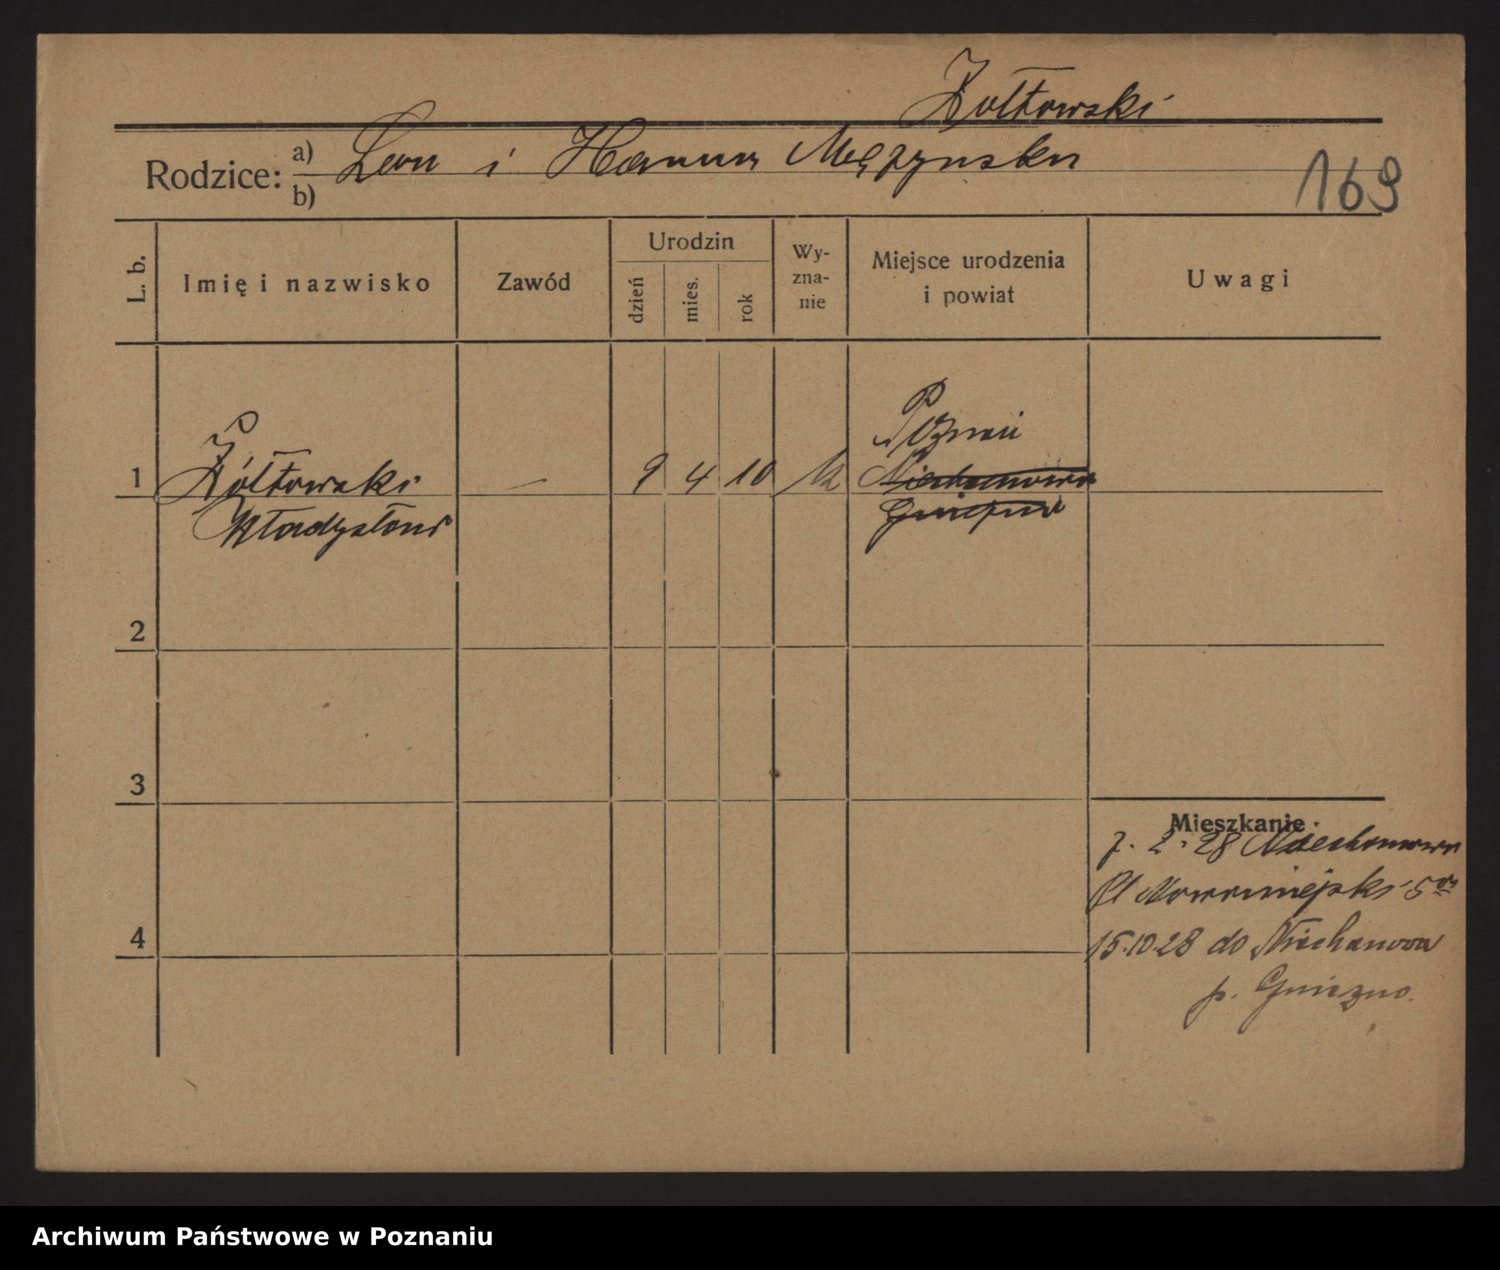 Żółtowski
Rodzice: a) b) Leon i Hanna Mężynska
169
L. b.
Imię i nazwisko
Zawód
Urodzin
dzień
mies.
rok
Wy-
zna-
nie
Miejsce urodzenia
i powiat
Uwagi
Poznań
1 Żółtowski — 9 4 10 k Niechanowo
Władysław Gniezno
2
3
Mieszkanie
7. 2. 28 Niechanowo
Pl Nowomiejski 5
4
15.10.28 do Niechanowa
p. Gniezno.
Archiwum Państwowe w Poznaniu